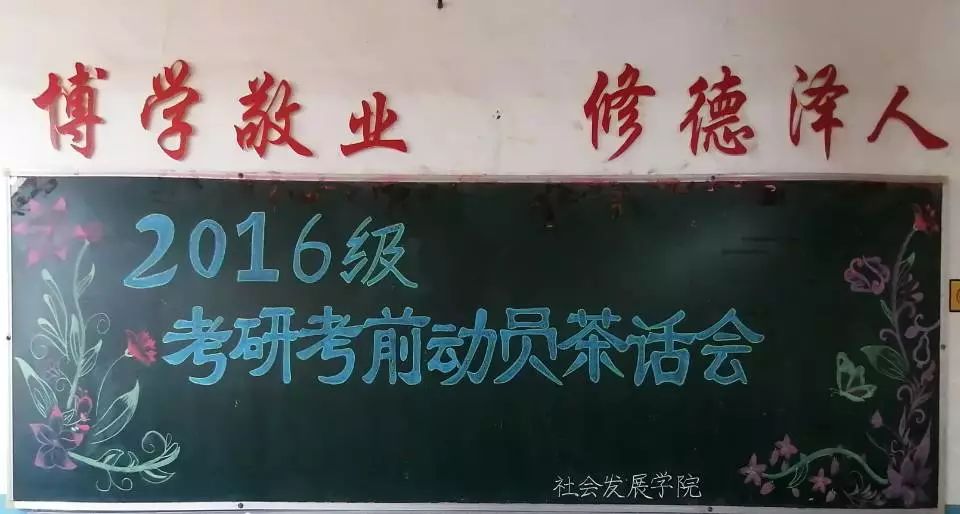 博学敬业 修德泽人
2016级
考研考前动员茶话会
社会发展学院